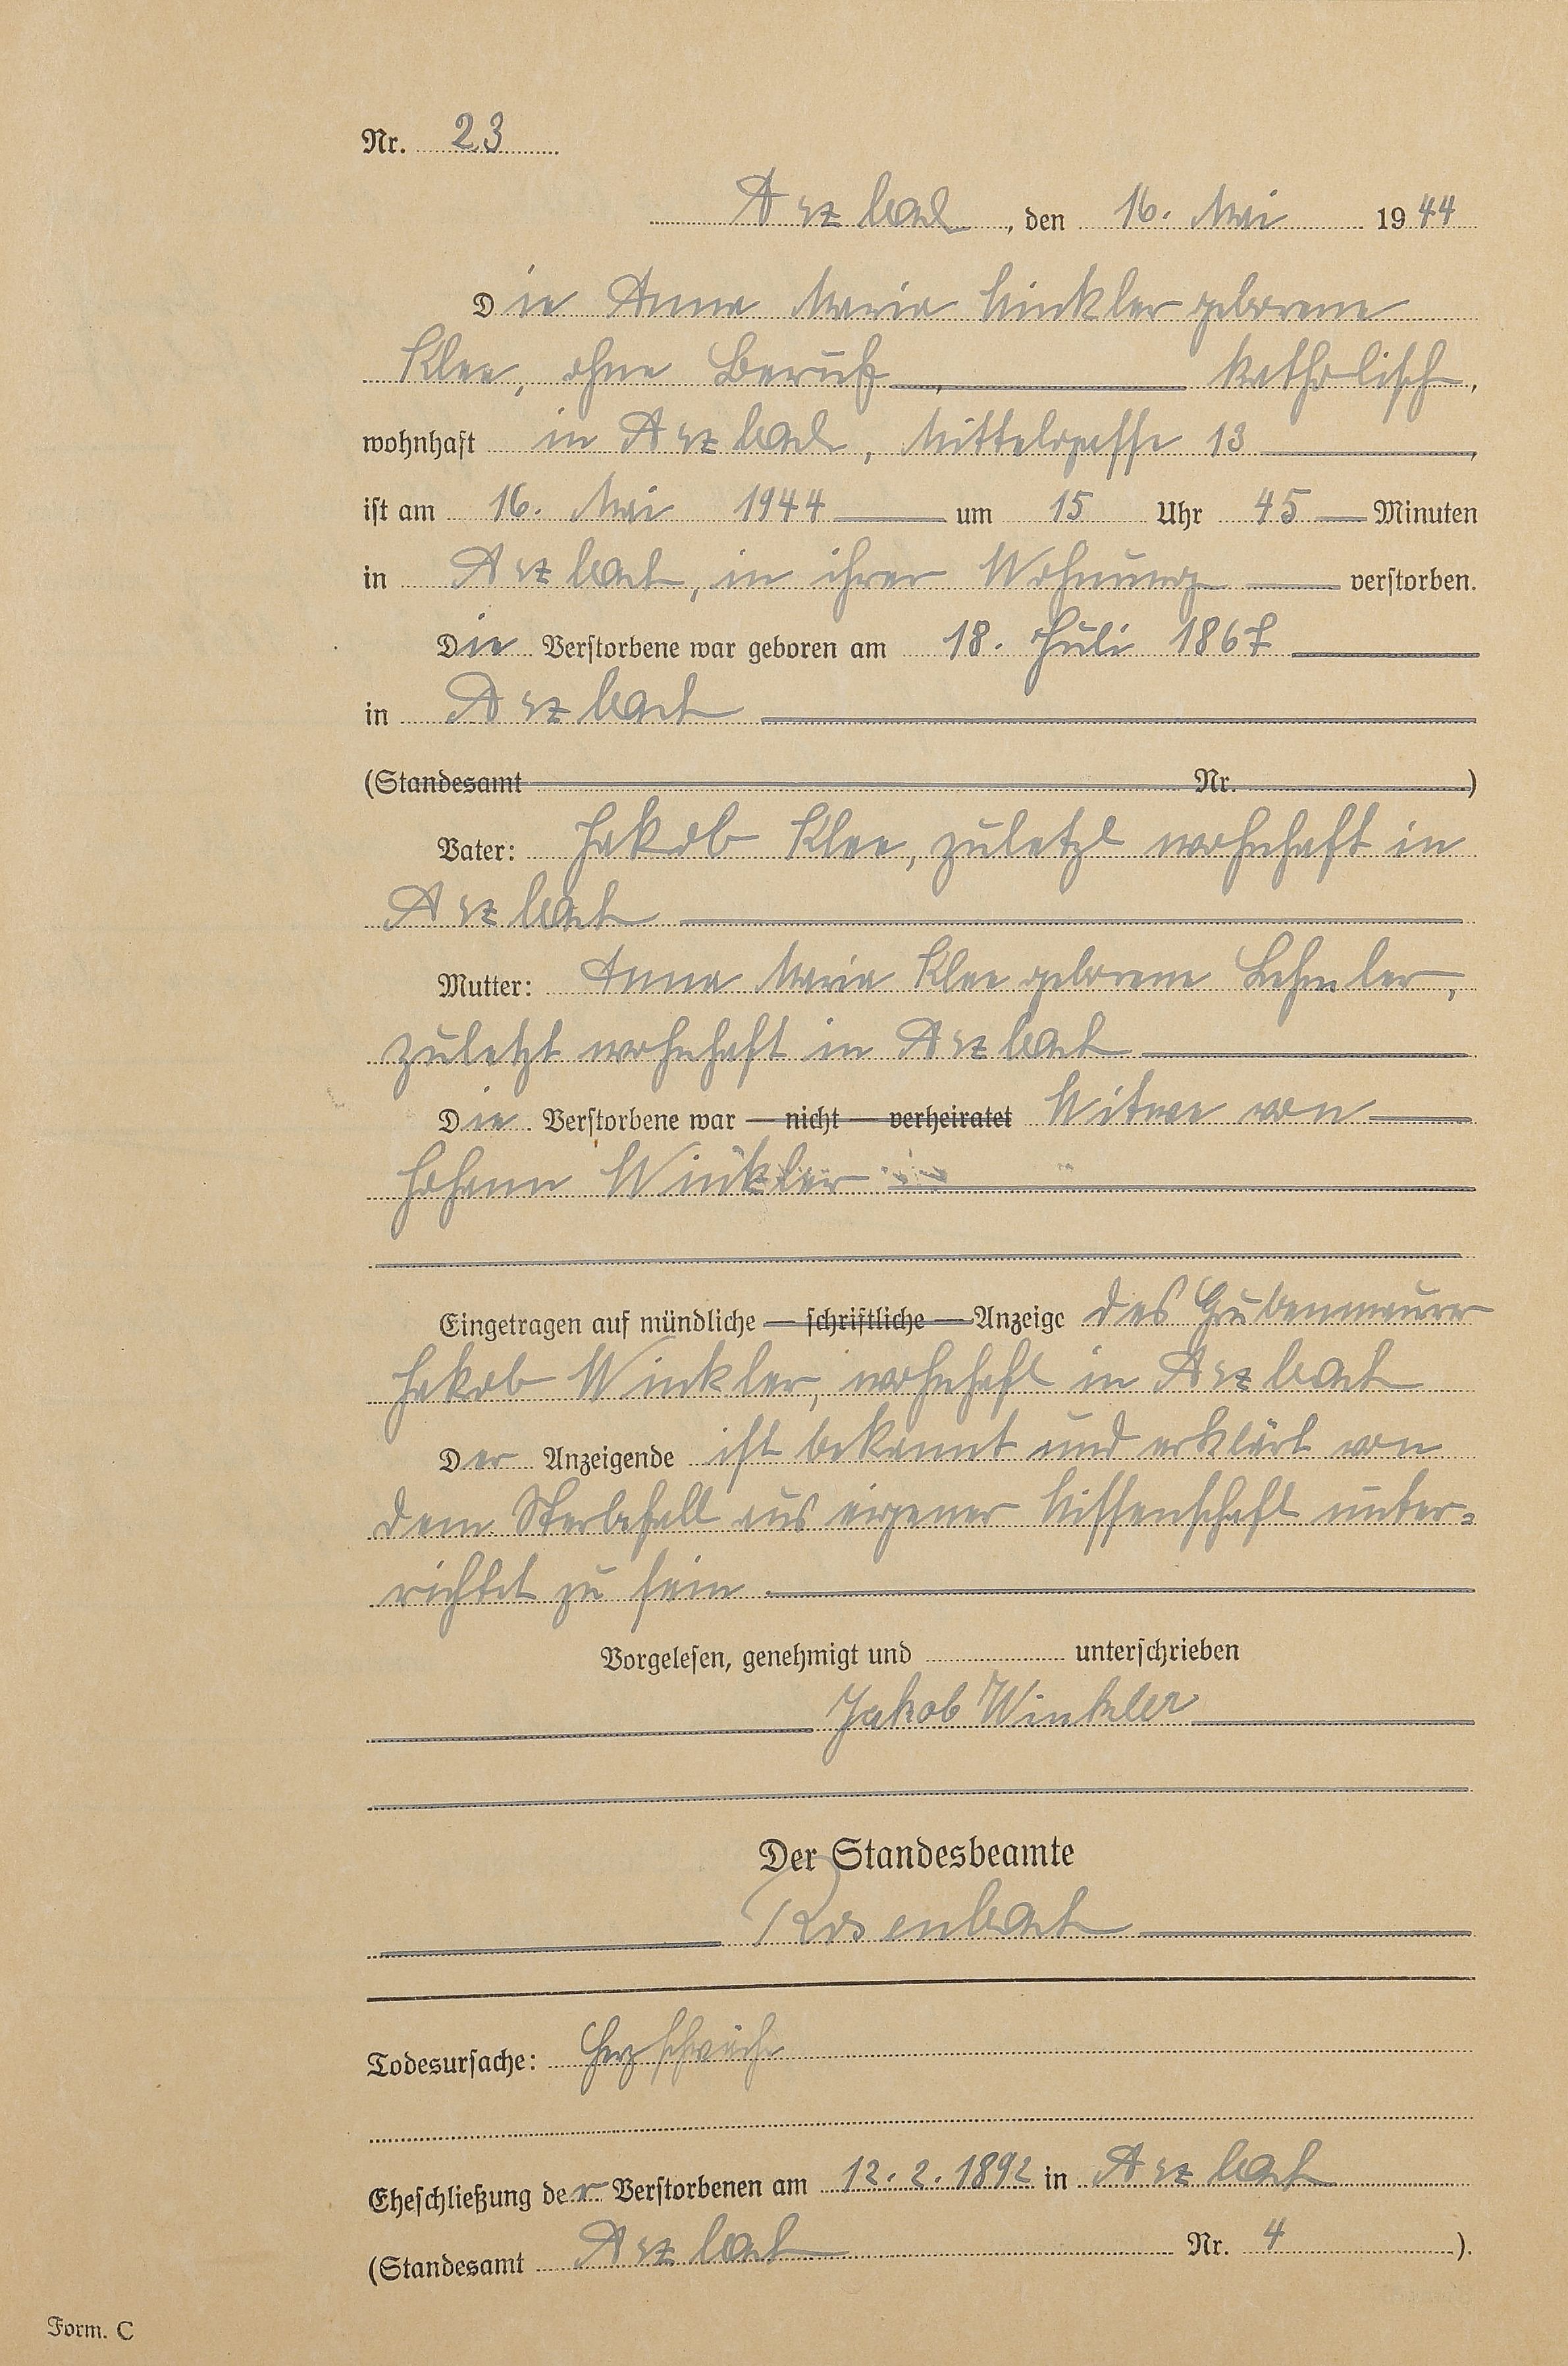 Nr. 23
Arzbach, den 16. Mai 1944
Die Anna Maria Winkler geborene
Klee, ohne Beruf, katholisch,
wohnhaft in Arzbach, Mittelgasse 13,
ist am 16. Mai 1944 um 15 Uhr 45 Minuten
in Arzbach, in ihrer Wohnung verstorben.
Die Verstorbene war geboren am 18. Juli 1867
in Arzbach
(Standesamt Nr. )
Vater: Jakob Klee, zuletzt wohnhaft in
Arzbach
Mutter: Anna Maria Klee geborene Lehmler,
zuletzt wohnhaft in Arzbach
Die Verstorbene war — nicht — verheiratet Witwe von
Johann Winkler
Eingetragen auf mündliche — schriftliche — Anzeige des
Jakob Winkler, wohnhaft in Arzbach
Der Anzeigende ist bekannt und erklärt von
dem Sterbefall aus eigener Wissenschaft unter=
richtet zu sein.
Vorgelesen, genehmigt und unterschrieben
Jakob Winkler
Der Standesbeamte
Rosenbach
Todesursache: Herzschwäche
Eheschließung der Verstorbenen am 12.2.1892 in Arzbach
(Standesamt Arzbach Nr. 4 ).
Form. C